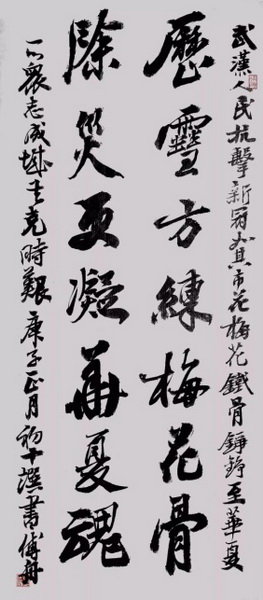 武漢人民抗擊新冠如其市花梅花鐵骨錚錚至華夏
歷雪方練梅花骨
除災更凝華夏魂
一心衆志成城共克時艱庚子正月初十撰書傅舟